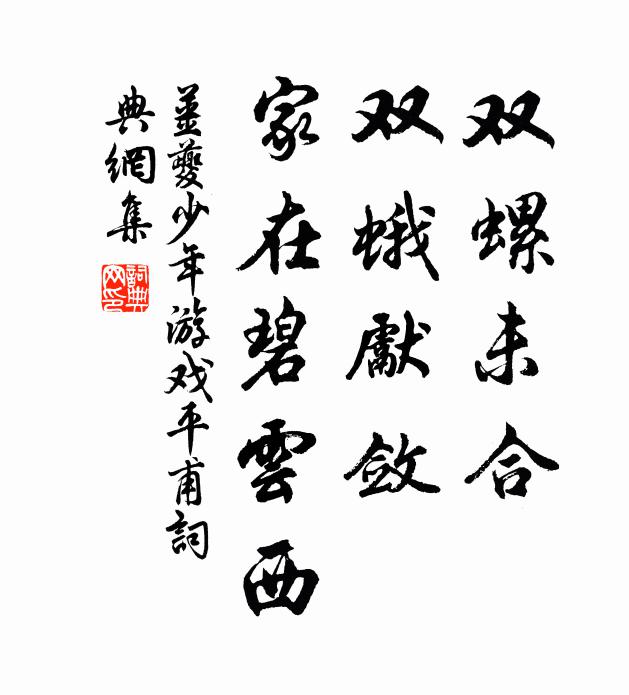 双螺未合
双蛾獻斂
家在碧雲西
姜夔少年游戏平甫詞
典網集
詞典网印